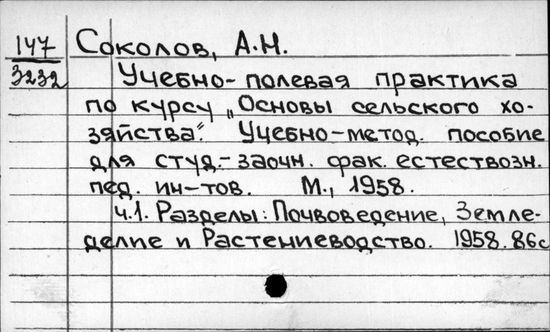 147 Соколов, А.Н.
3232 Учебно-полевая практика
по курсу „Основы сельского хо-
зяйства". Учебно-метод. пособие
для студ.-заочн. фак. естествозн.
пед. ин-тов. М., 1958.
ч.1. Разделы: Почвоведение, Земле-
делие и Растениеводство. 1958. 86с